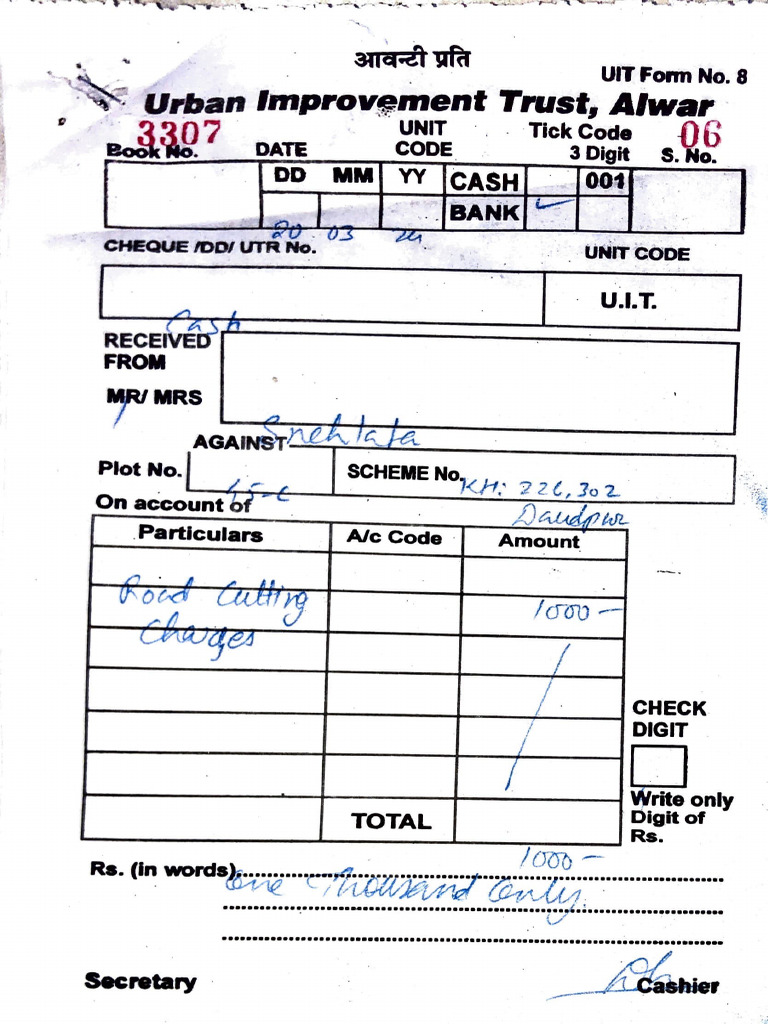 आवन्टी प्रति
UIT Form No. 8
Urban Improvement Trust, Alwar
3307 UNIT Tick Code 06
Book No. DATE CODE 3 Digit S. No.
DD MM YY CASH 001
BANK ✓
20 03
CHEQUE /DD/ UTR No. UNIT CODE
U.I.T.
Cash
RECEIVED
FROM
MR/ MRS
AGAINST Snehlata
Plot No. SCHEME No.
45-C KH: 226,302
On account of Daudpur
Particulars A/c Code Amount
Road Cutting 1000 –
Charges
CHECK
DIGIT
Write only
TOTAL Digit of
Rs.
1000 –
Rs. (in words)
One Thousand Only.
Secretary Cashier